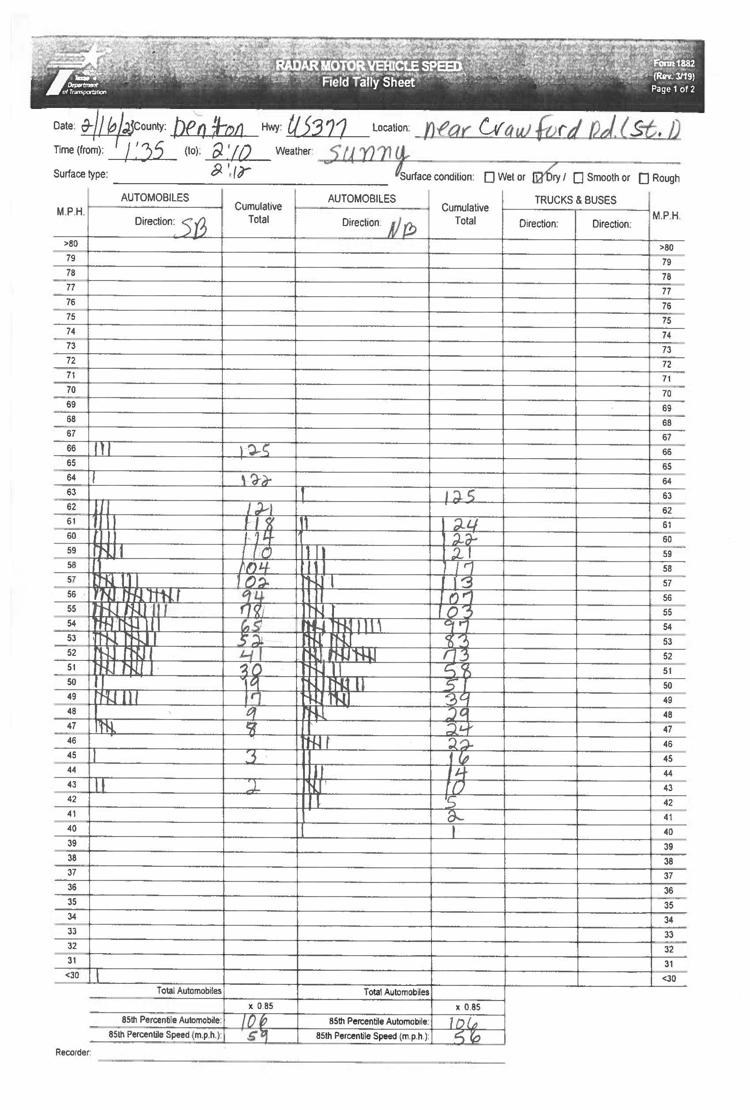 Texas
Department
of Transportation
RADAR MOTOR VEHICLE SPEED
Field Tally Sheet
Form 1882
(Rev. 3/19)
Page 1 of 2
Date: 2/16/23 County: Denton Hwy: US377 Location: near Crawford Rd. (St. 1)
Time (from): 1:35 (to): 2:10 Weather: Sunny
2:12
Surface type: Surface condition: Wet or Dry / Smooth or Rough
M.P.H. AUTOMOBILES Cumulative Total AUTOMOBILES Cumulative Total TRUCKS & BUSES M.P.H.
Direction: SB Direction: NB Direction: Direction:
>80 >80
79 79
78 78
77 77
76 76
75 75
74 74
73 73
72 72
71 71
70 70
69 69
68 68
67 67
66 125 66
65 65
64 122 64
63 125 63
62 121 62
61 118 124 61
60 114 122 60
59 110 121 59
58 104 117 58
57 102 113 57
56 94 107 56
55 78 103 55
54 65 97 54
53 52 83 53
52 41 73 52
51 30 58 51
50 19 51 50
49 17 39 49
48 9 29 48
47 8 24 47
46 22 46
45 3 16 45
44 14 44
43 2 10 43
42 5 42
41 2 41
40 1 40
39 39
38 38
37 37
36 36
35 35
34 34
33 33
32 32
31 31
<30 <30
Total Automobiles Total Automobiles
x 0.85 x 0.85
85th Percentile Automobile: 106 85th Percentile Automobile: 106
85th Percentile Speed (m.p.h.): 59 85th Percentile Speed (m.p.h.): 56
Recorder: